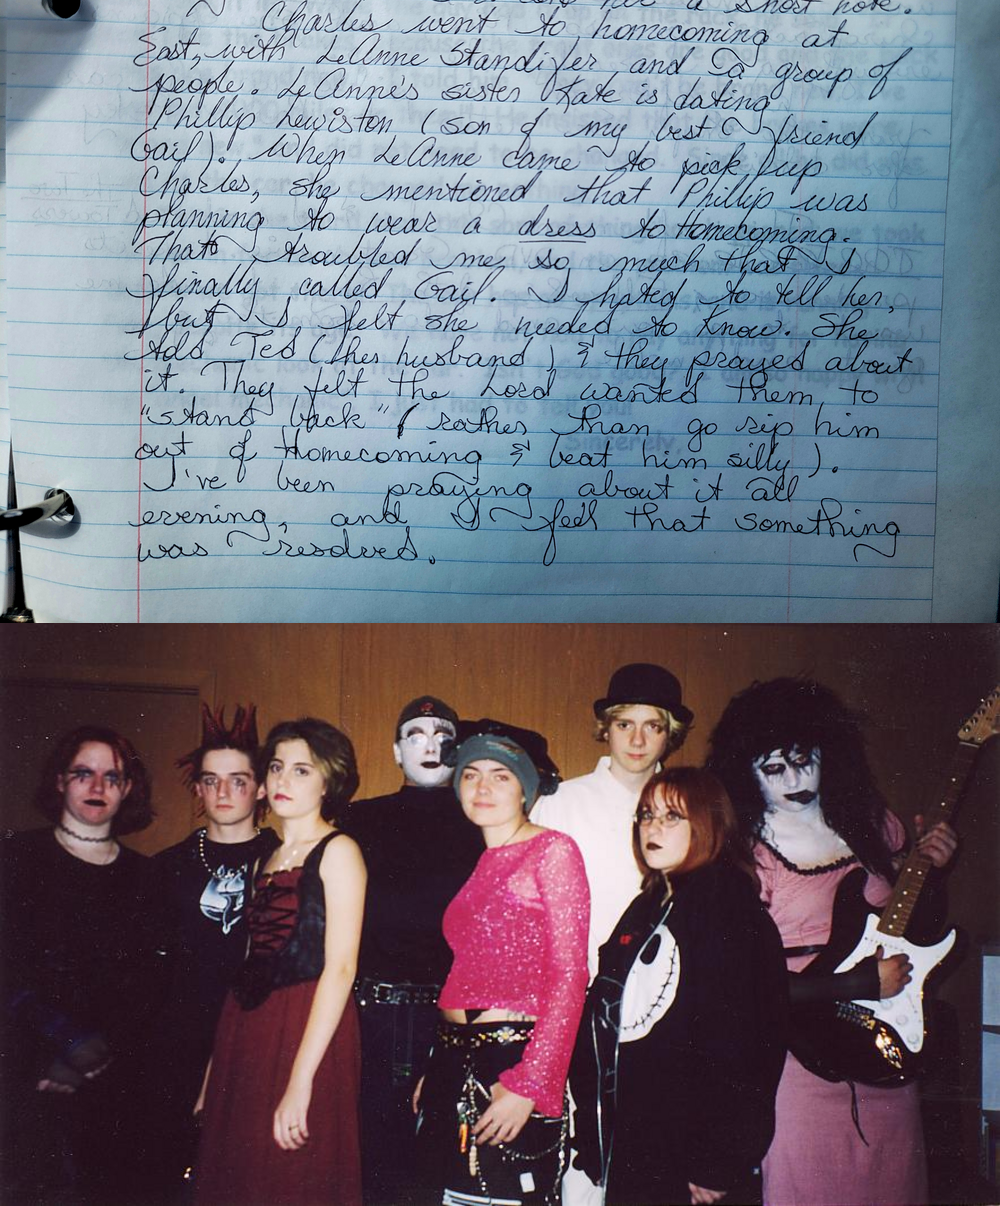 a short note.
Charles went to homecoming at
East, with LeAnne Standifer and a group of
people. LeAnne's sister Kate is dating
Phillip Lewiston (son of my best friend
Gail). When LeAnne came to pick up
Charles, she mentioned that Phillip was
planning to wear a dress to Homecoming.
That troubled me so much that I
finally called Gail. I hated to tell her,
but I felt she needed to know. She
told Ted (her husband) & they prayed about
it. They felt the Lord wanted them to
"stand back" (rather than go rip him
out of Homecoming & beat him silly).
I've been praying about it all
evening, and I feel that something
was resolved.